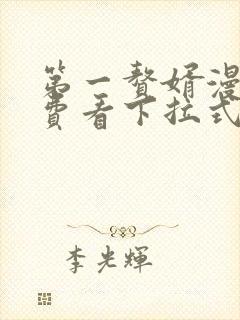 第一赘婿漫
费看下拉式
李光輝